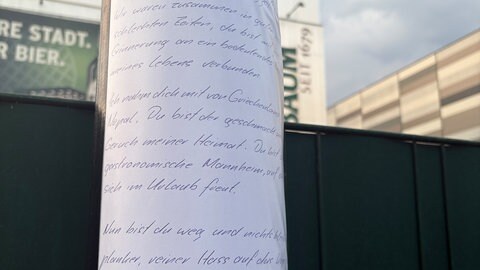 RE STADT.
R BIER.
BAUM
SEIT 1679
Wir waren zusammen in gu
schlechten Zeiten, du bist
Erinnerung an ein bedeutende
meines Lebens verbunden
Ich nahm dich mit von Griechenland
Nepal. Du bist der geschmack
Geruch meiner Heimat. Du bist
gastronomische Mannheim, auf
sich im Urlaub freut.
Nun bist du weg und nichts
plauter, reiner Hass auf die